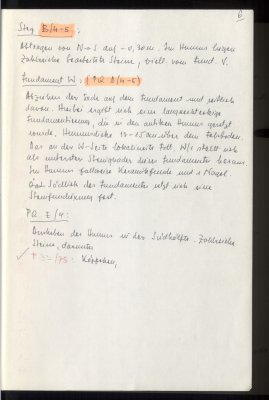 6
Steg B/4-5:
Abtragen von N→S auf -0,30m. Im Humus liegen
zahlreiche bearbeitete Steine, vielleicht vom Fund. V.
Fundament W: (PQ B/4-5)
Abziehen der Erde auf dem Fundament und seitlich
davon. Hierbei ergibt sich eine langrechteckige
Fundamentierung, die in den antiken Humus gesetzt
wurde, Humusdicke 13-15 cm über dem
Das an der W-Seite lokalisierte Pfl. W/1 stellt sich
als unterster Steinquader eines Fundamentes heraus.
Im Humus fallweise Keramikfunde und 1 Nagel.
Südlich des Fundamentes setzt sich eine
Steinfundierung fort.
PQ E/4:
Abheben des Humus in der Südhälfte. Zahlreiche
Steine, darunter
/75: Köpfchen,